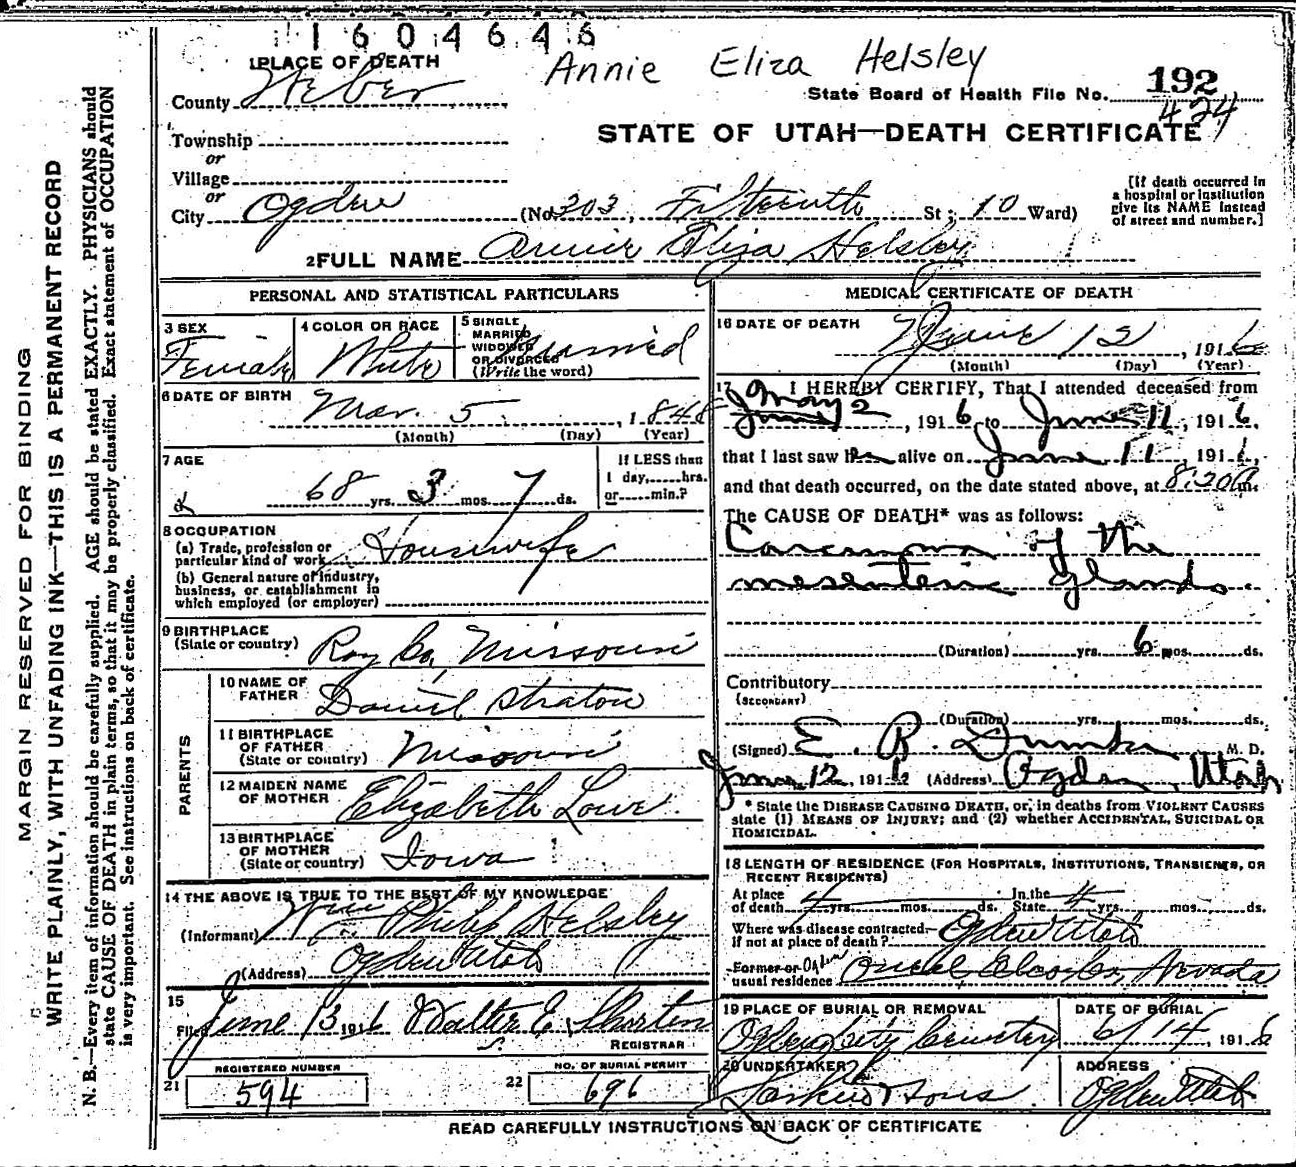 1604646
Annie Eliza Helsley
1 PLACE OF DEATH
County Weber
State Board of Health File No. 192
424
Township
or
STATE OF UTAH—DEATH CERTIFICATE
Village
or
City Ogden (No. 303, Fifteenth St; 10 Ward)
[If death occurred in
a hospital or institution
give its NAME instead
of street and number.]
2 FULL NAME Annie Eliza Helsley
PERSONAL AND STATISTICAL PARTICULARS
3 SEX
Female
4 COLOR OR RACE
White
5 SINGLE
MARRIED
WIDOWED
OR DIVORCED
(Write the word)
Married
6 DATE OF BIRTH
Mar. 5, 1848
(Month) (Day) (Year)
7 AGE
68 yrs. 3 mos. 7 ds.
If LESS than
1 day,......hrs.
or......min.?
8 OCCUPATION
(a) Trade, profession or
particular kind of work Housewife
(b) General nature of industry,
business, or establishment in
which employed (or employer)
9 BIRTHPLACE
(State or country) Ray Co, Missouri
PARENTS
10 NAME OF
FATHER Daniel Straton
11 BIRTHPLACE
OF FATHER
(State or country) Missouri
12 MAIDEN NAME
OF MOTHER Elizabeth Lowe
13 BIRTHPLACE
OF MOTHER
(State or country) Iowa
14 THE ABOVE IS TRUE TO THE BEST OF MY KNOWLEDGE
(Informant) Wm Philip Helsley
(Address) Ogden Utah
15
Filed June 13 1916 Walter E. Shorten
REGISTRAR
21 REGISTERED NUMBER
594
22 NO. OF BURIAL PERMIT
696
MEDICAL CERTIFICATE OF DEATH
16 DATE OF DEATH
June 12, 1916
(Month) (Day) (Year)
17 I HEREBY CERTIFY, That I attended deceased from
May
June 2, 1916, to June 11, 1916,
that I last saw her alive on June 11, 1916,
and that death occurred, on the date stated above, at 8:20 a m.
The CAUSE OF DEATH* was as follows:
Carcinoma of the
mesenteric glands
(Duration) yrs. 6 mos. ds.
Contributory
(SECONDARY)
(Duration) yrs. mos. ds.
(Signed) E. R. Dumke M. D.
June 12, 1916 (Address) Ogden, Utah
* State the DISEASE CAUSING DEATH, or, in deaths from VIOLENT CAUSES
state (1) MEANS OF INJURY; and (2) whether ACCIDENTAL, SUICIDAL OR
HOMICIDAL.
18 LENGTH OF RESIDENCE (FOR HOSPITALS, INSTITUTIONS, TRANSIENTS, OR
RECENT RESIDENTS)
At place
of death 4 yrs. mos. ds. In the State 4 yrs. mos. ds.
Where was disease contracted
if not at place of death? Ogden Utah
Former or
usual residence Elco Co, Nevada
19 PLACE OF BURIAL OR REMOVAL
Ogden City Cemetery
DATE OF BURIAL
6/14, 1916
20 UNDERTAKER
Larkin & Sons
ADDRESS
Ogden Utah
READ CAREFULLY INSTRUCTIONS ON BACK OF CERTIFICATE
MARGIN RESERVED FOR BINDING
WRITE PLAINLY, WITH UNFADING INK—THIS IS A PERMANENT RECORD
N. B.—Every item of information should be carefully supplied. AGE should be stated EXACTLY. PHYSICIANS should
state CAUSE OF DEATH in plain terms, so that it may be properly classified. Exact statement of OCCUPATION
is very important. See instructions on back of certificate.